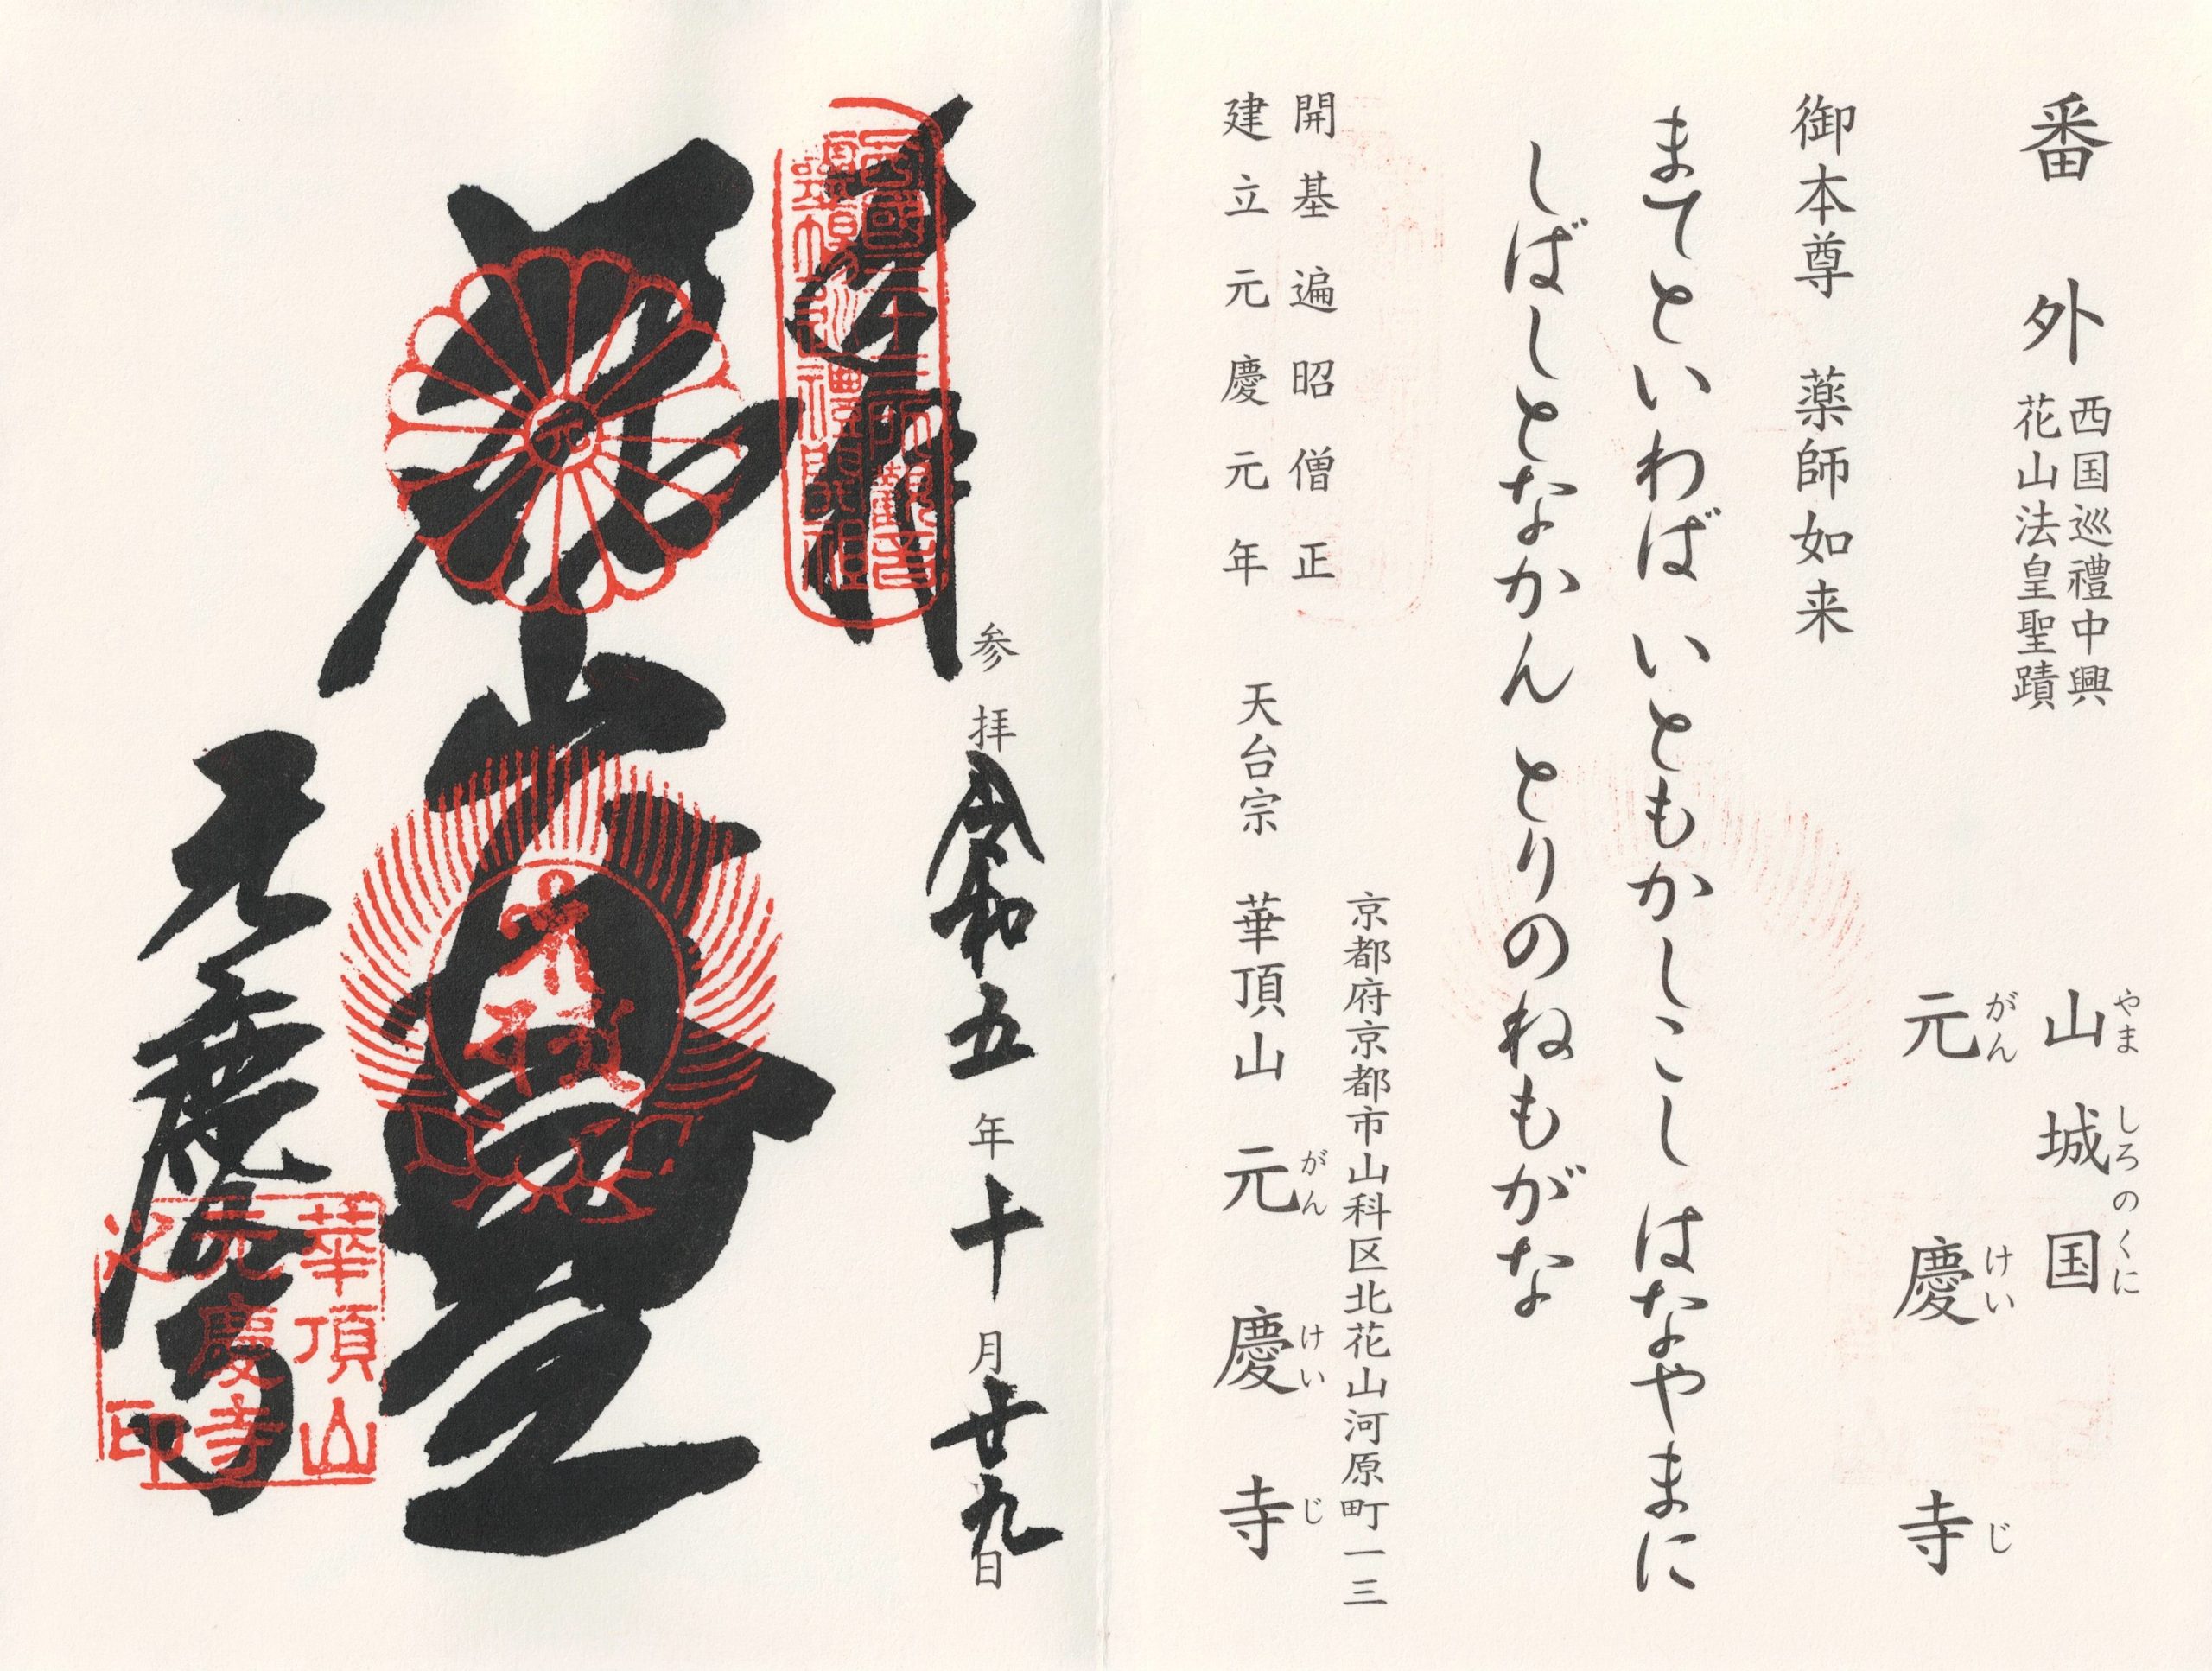 番外
西国巡禮中興
花山法皇聖蹟
山城国
やましろのくに
元慶寺
がんけいじ
御本尊 薬師如来
まてといわば いともかしこし はなやまに
しばしとなかん とりのねもがな
京都府京都市山科区北花山河原町一三
開基遍昭僧正
建立元慶元年
天台宗 華頂山 元慶寺
がんけいじ
参拝 令和五年十月廿九日
奉拝
元慶寺
元
華頂山
元慶寺
之印